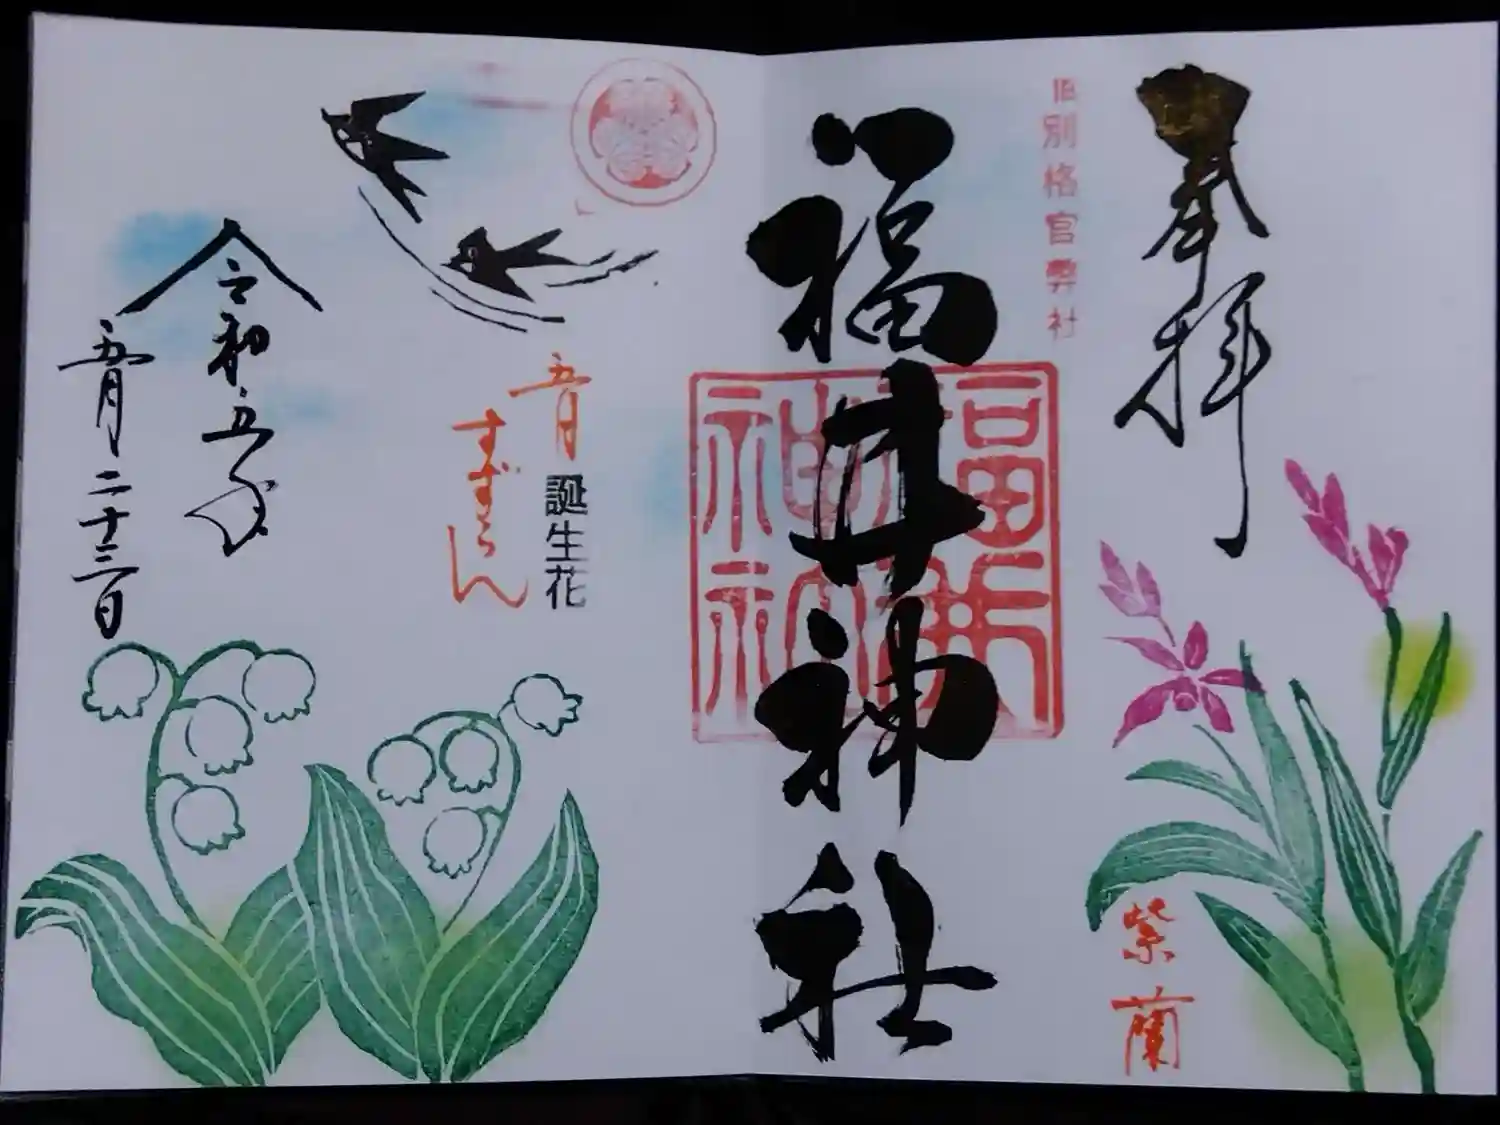 奉拝
旧別格官幣社
福井神社
紫蘭
五月誕生花
すずらん
令和五年
五月二十三日